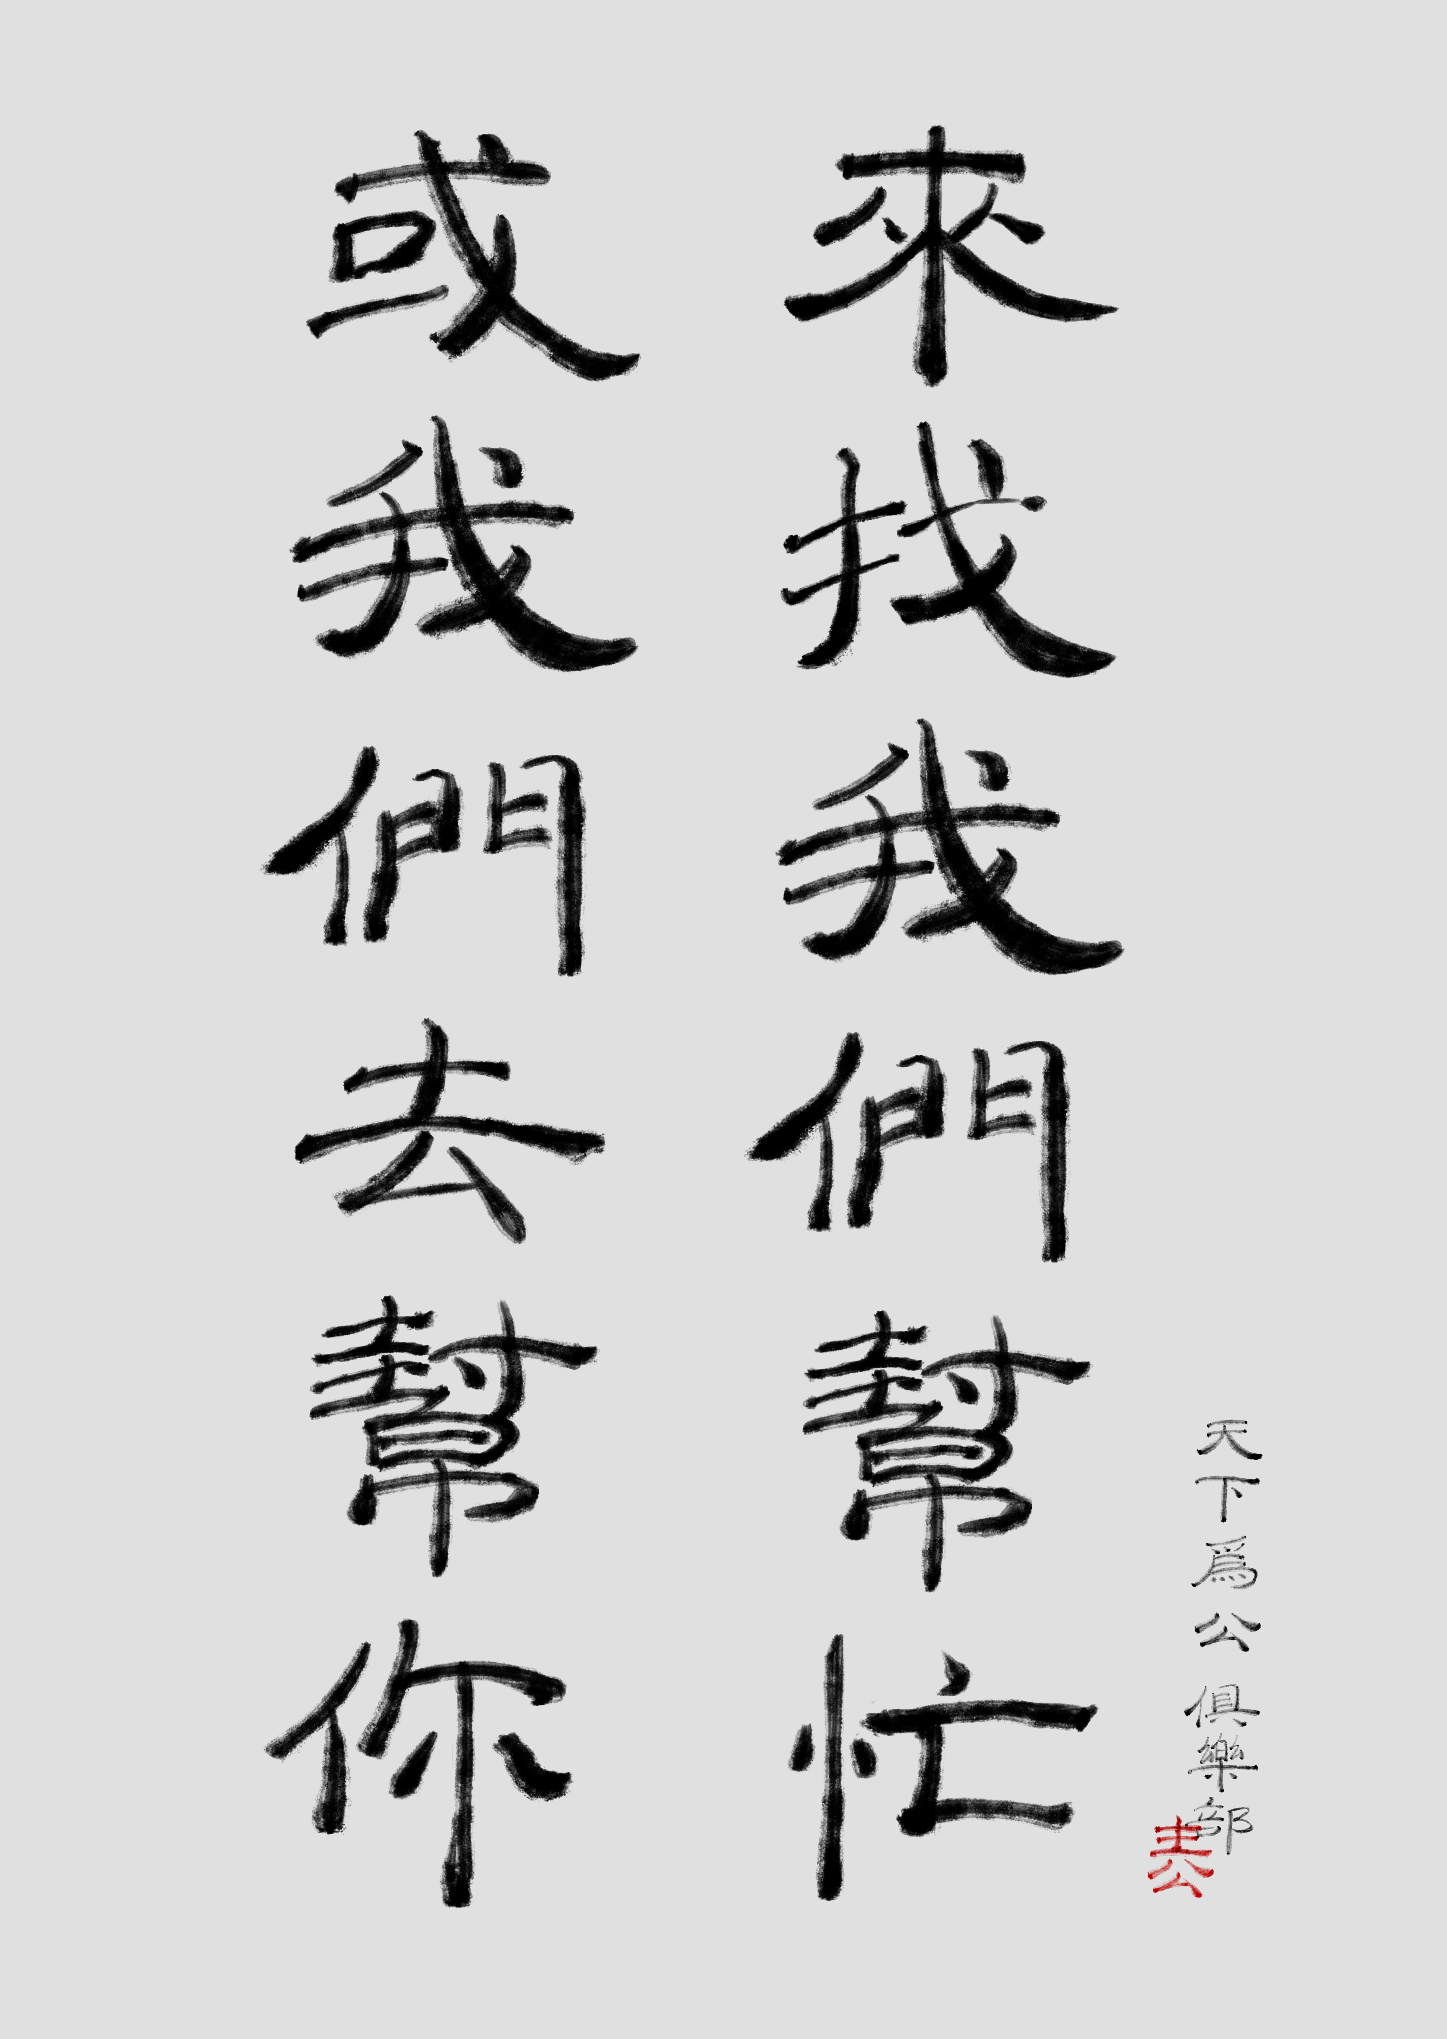 天下爲公俱樂部
來找我們幫忙
或我們去幫你